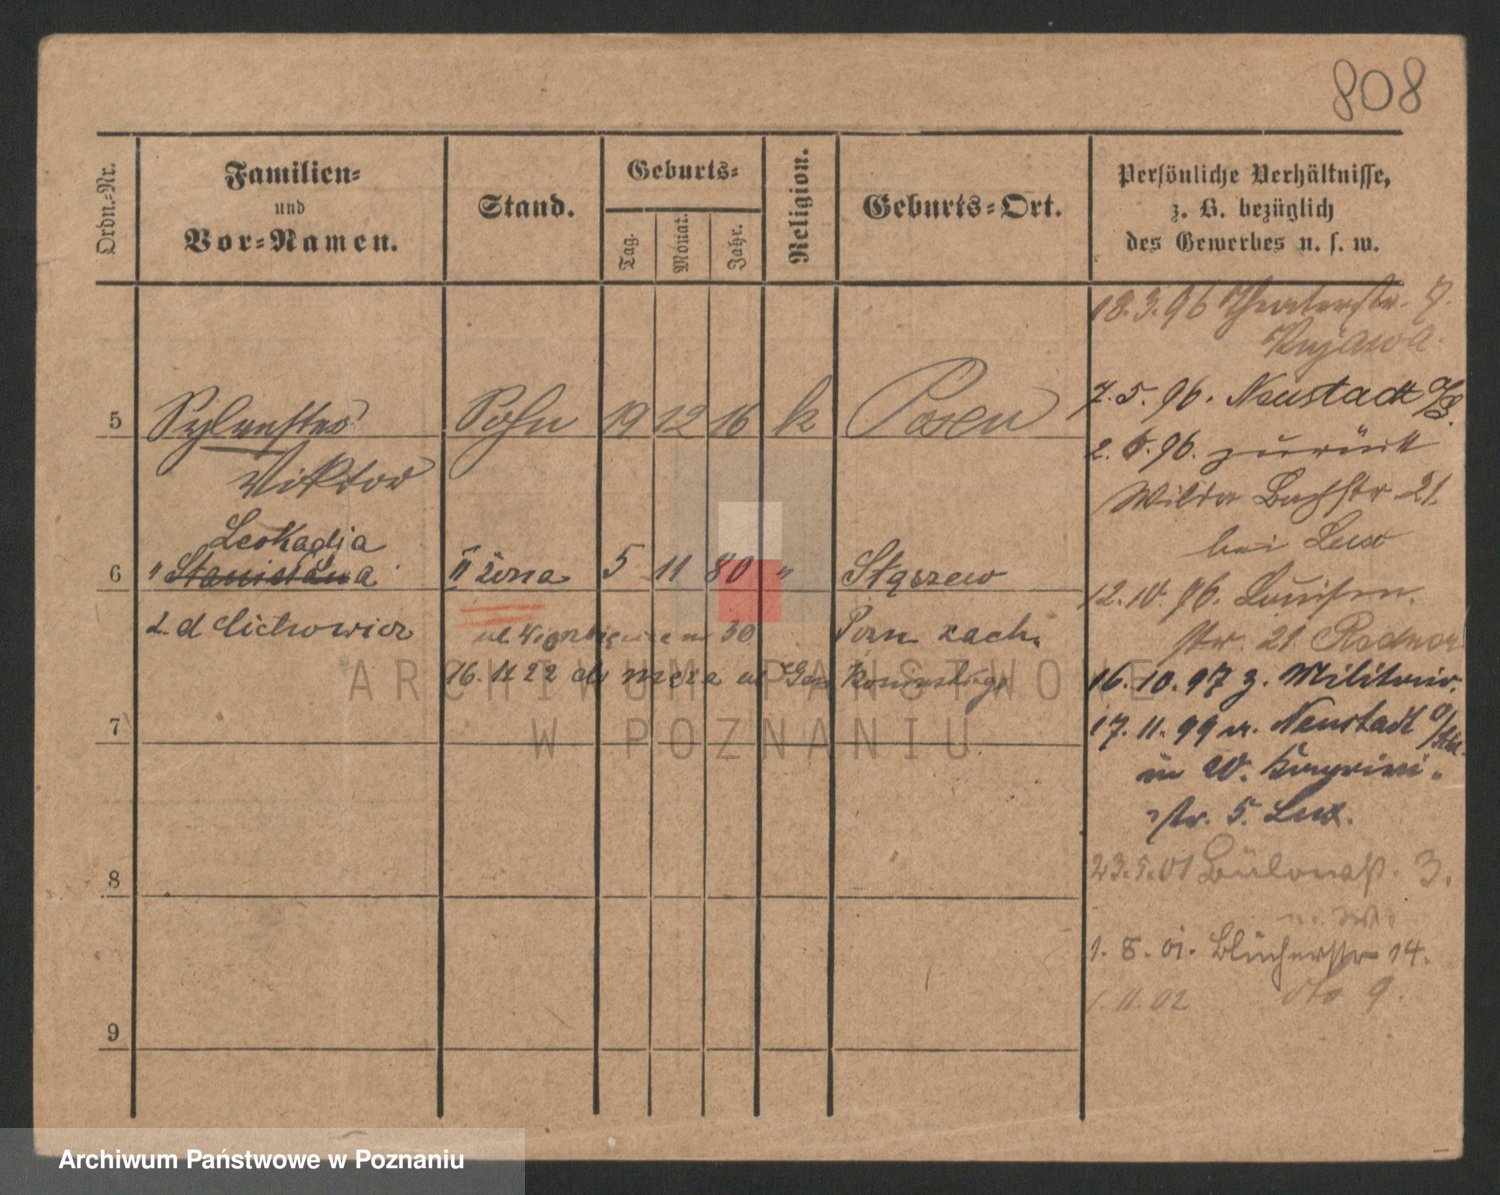 808
Ordn.-Nr.
Familien-
und
Vor-Namen.
Stand.
Geburts-
Tag.
Monat.
Jahr.
Religion.
Geburts-Ort.
Persönliche Verhältnisse,
z. B. bezüglich
des Gewerbes u. s. w.
18.3.96 Theaterstr. 7.
Kujawa.
5 Sylvester Sohn 19 12 16 k Posen
Viktor
7.5.96. Neustadt
2.6.96. zurück
Wilda Bachstr 21.
bei Luso
Leokadja
6 " Stanisława II żona 5 11 80 " Stęszew
12.10.96. Louisen-
str. 21
z. d Cichowicz
30 Pozn zach.
16. 11 22 do męża ul Gen
16.10.97 z. Militair.
7
17.11.99 v. Neustadt
in W.
str. 5. Lux.
8
23.5.01 Bülowstr. 3.
n. W.
1.8.01. Blücherstr 14.
1.11.02 dto 9.
9
ARCHIWUM PAŃSTWOWE
W POZNANIU
Archiwum Państwowe w Poznaniu